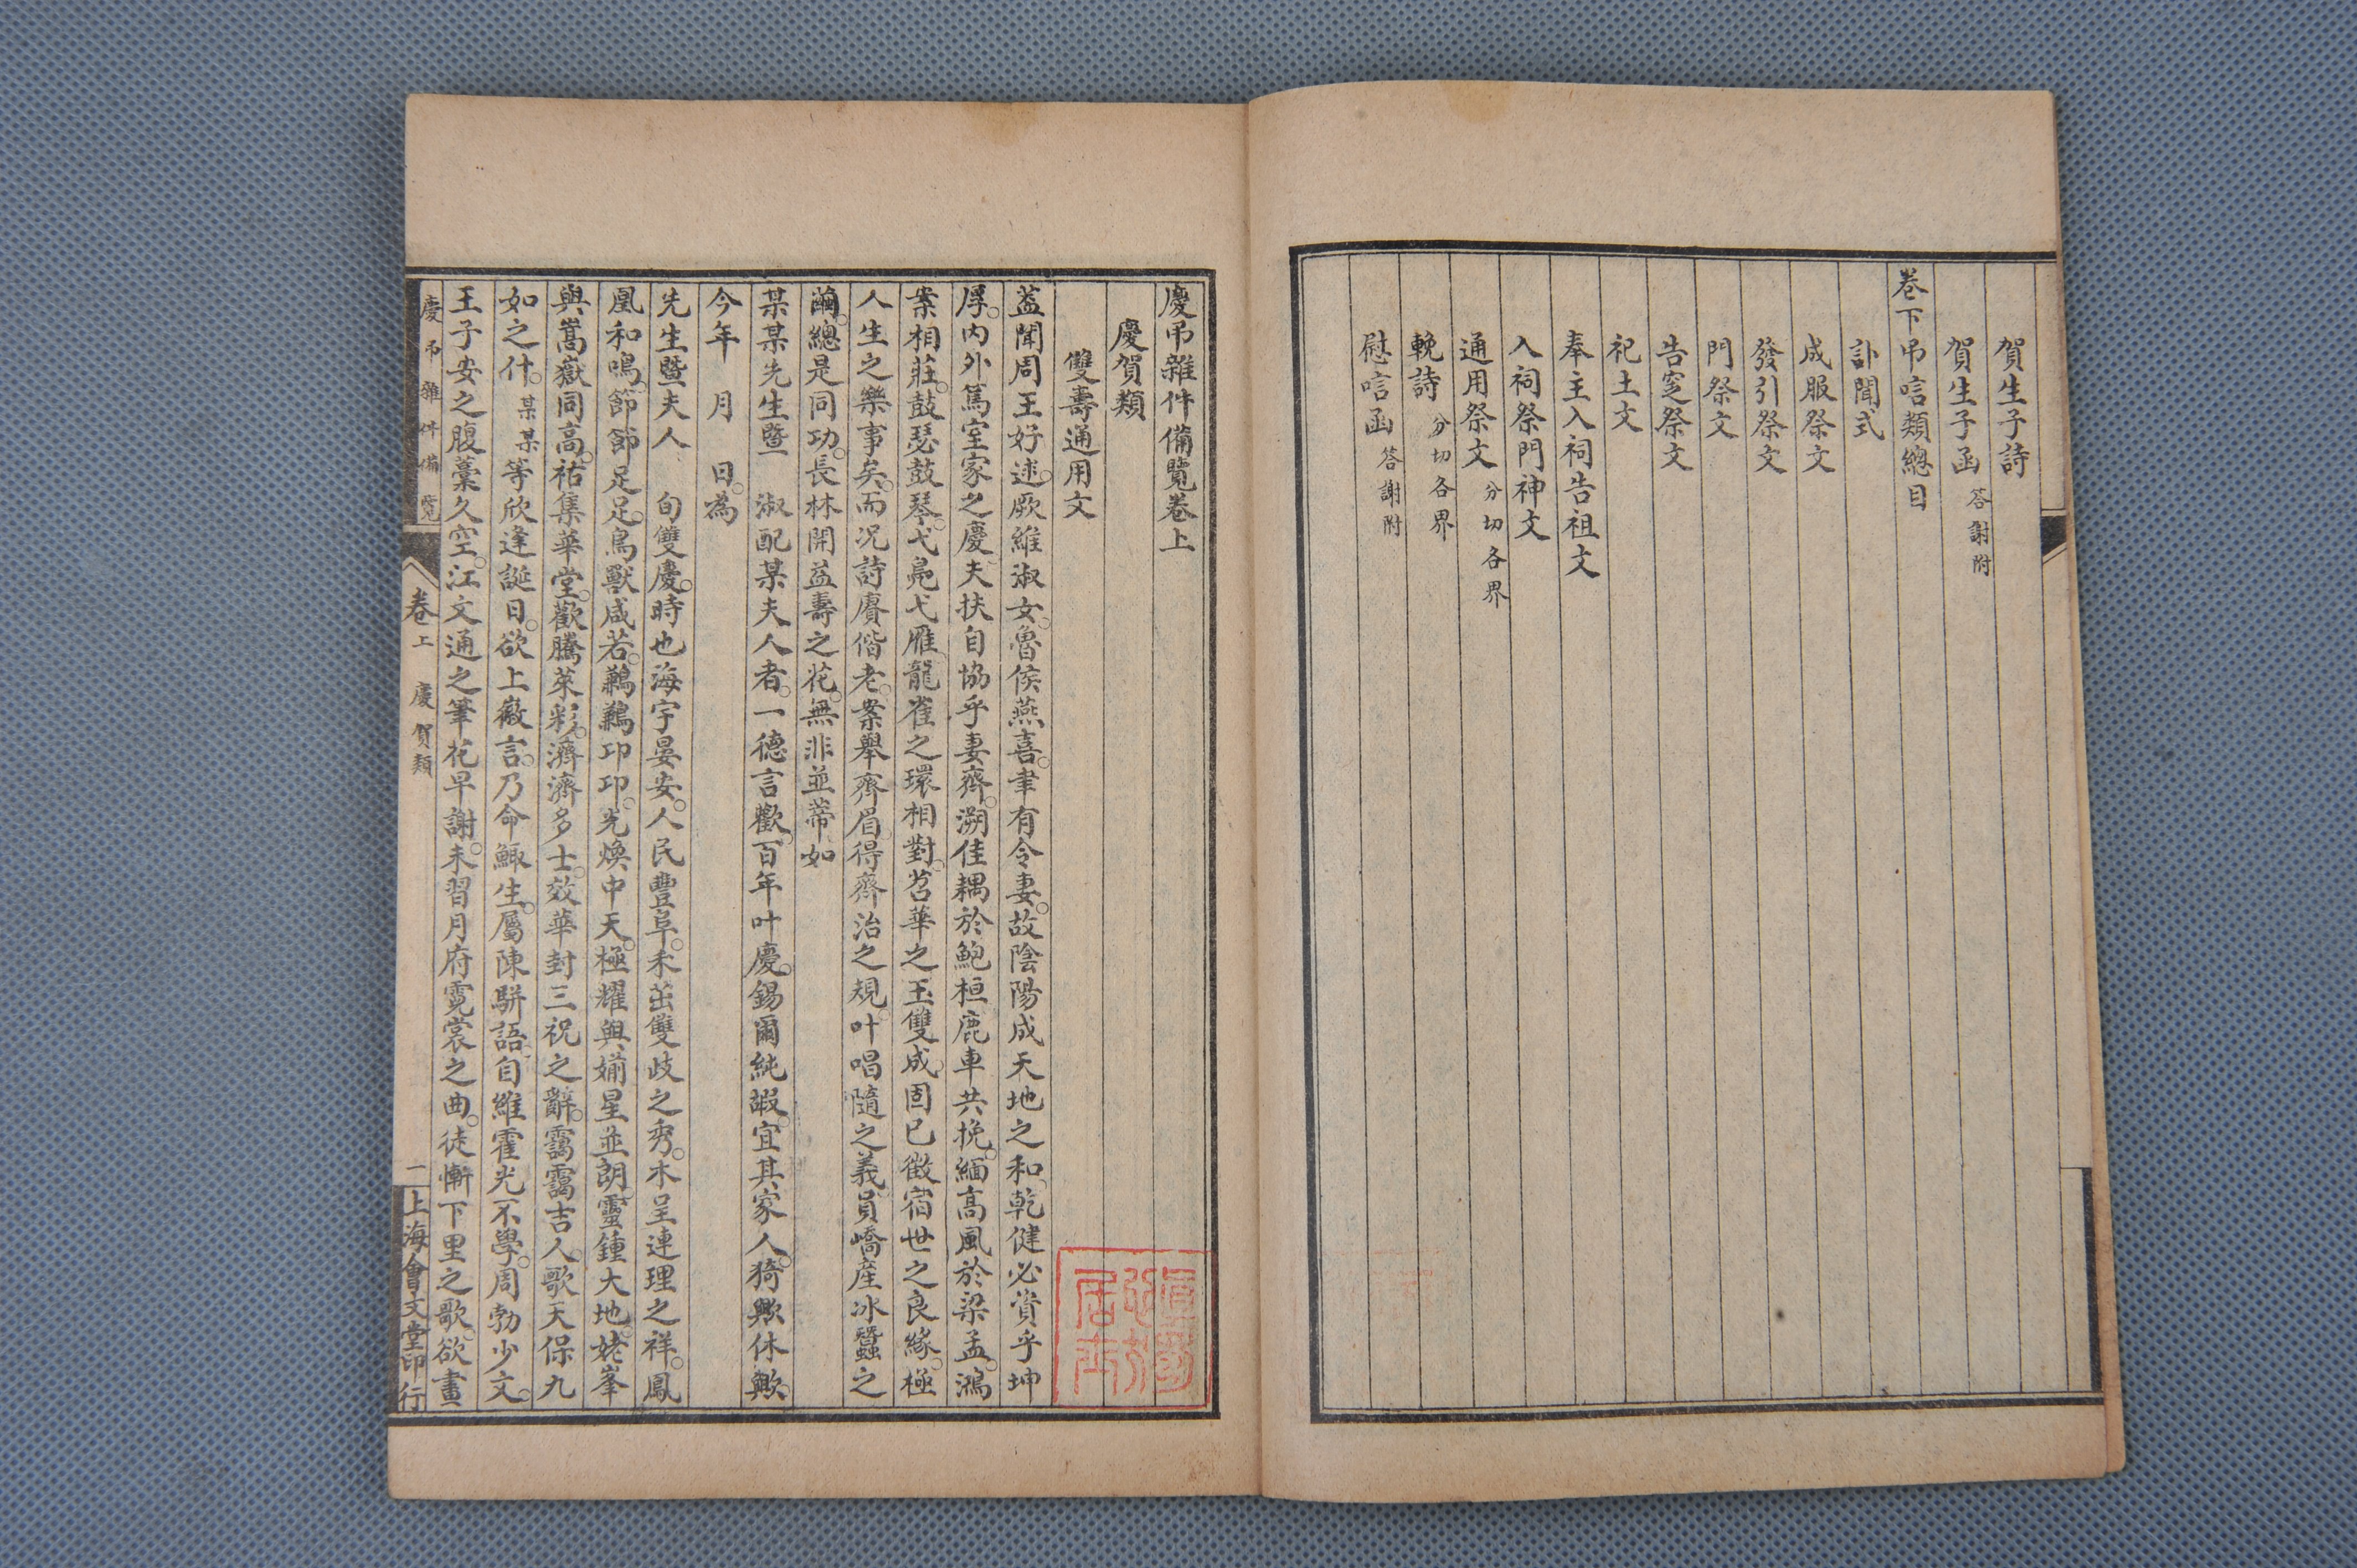 賀生子詩
賀生子函 答謝附
卷下弔唁類總目
訃聞式
成服祭文
發引祭文
門祭文
告窆祭文
祀土文
奉主入祠告祖文
入祠祭門神文
通用祭文 分切各界
輓詩 分切各界
慰唁函 答謝附
慶弔雜件備覽卷上
慶賀類
雙壽通用文
蓋聞周王好逑。厥維淑女。魯侯燕喜。聿有令妻。故陰陽成天地之和。乾健必資乎坤
厚。內外篤室家之慶。夫扶自協乎妻齊。溯佳耦於鮑桓。鹿車共挽。緬高風於梁孟。鴻
案相莊。鼓瑟鼓琴。弋鳧弋雁。龍雀之環相對。苕華之玉雙成。固已徵宿世之良緣。極
人生之樂事矣。而况詩賡偕老。案舉齊眉。得齊治之規。叶唱隨之義。員嶠產冰蠶之
繭。總是同功。長林開益壽之花。無非並蒂。如
某某先生暨　淑配某夫人者。一德言歡。百年叶慶。錫爾純嘏。宜其家人。猗歟休歟。
今年　月　日。為
先生暨夫人　旬雙慶。時也海宇晏安。人民豐阜。禾茁雙歧之秀。木呈連理之祥。鳳
凰和鳴。節節足足。鳥獸咸若。鶼鶼卭卭。光煥中天。極耀與婺星並朗。靈鍾大地。姥峯
與嵩嶽同高。祐集華堂。歡騰萊彩。濟濟多士。效華封三祝之辭。靄靄吉人。歌天保九
如之什。某某等欣逢誕日。欲上徽言。乃命鯫生。屬陳駢語。自維霍光不學。周勃少文。
王子安之腹藁久空。江文通之筆花早謝。未習月府霓裳之曲。徒慚下里之歌。欲畫
慶弔雜件備覽
卷上
慶賀類
一
上海會文堂印行